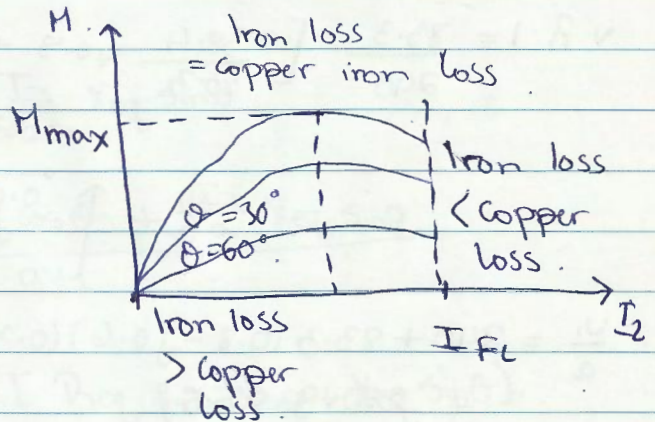 M.
Iron loss
= copper iron loss
Mmax
Iron loss
< copper
loss.
θ = 30°
θ = 60°
Iron loss
> copper
loss.
I FL
I2